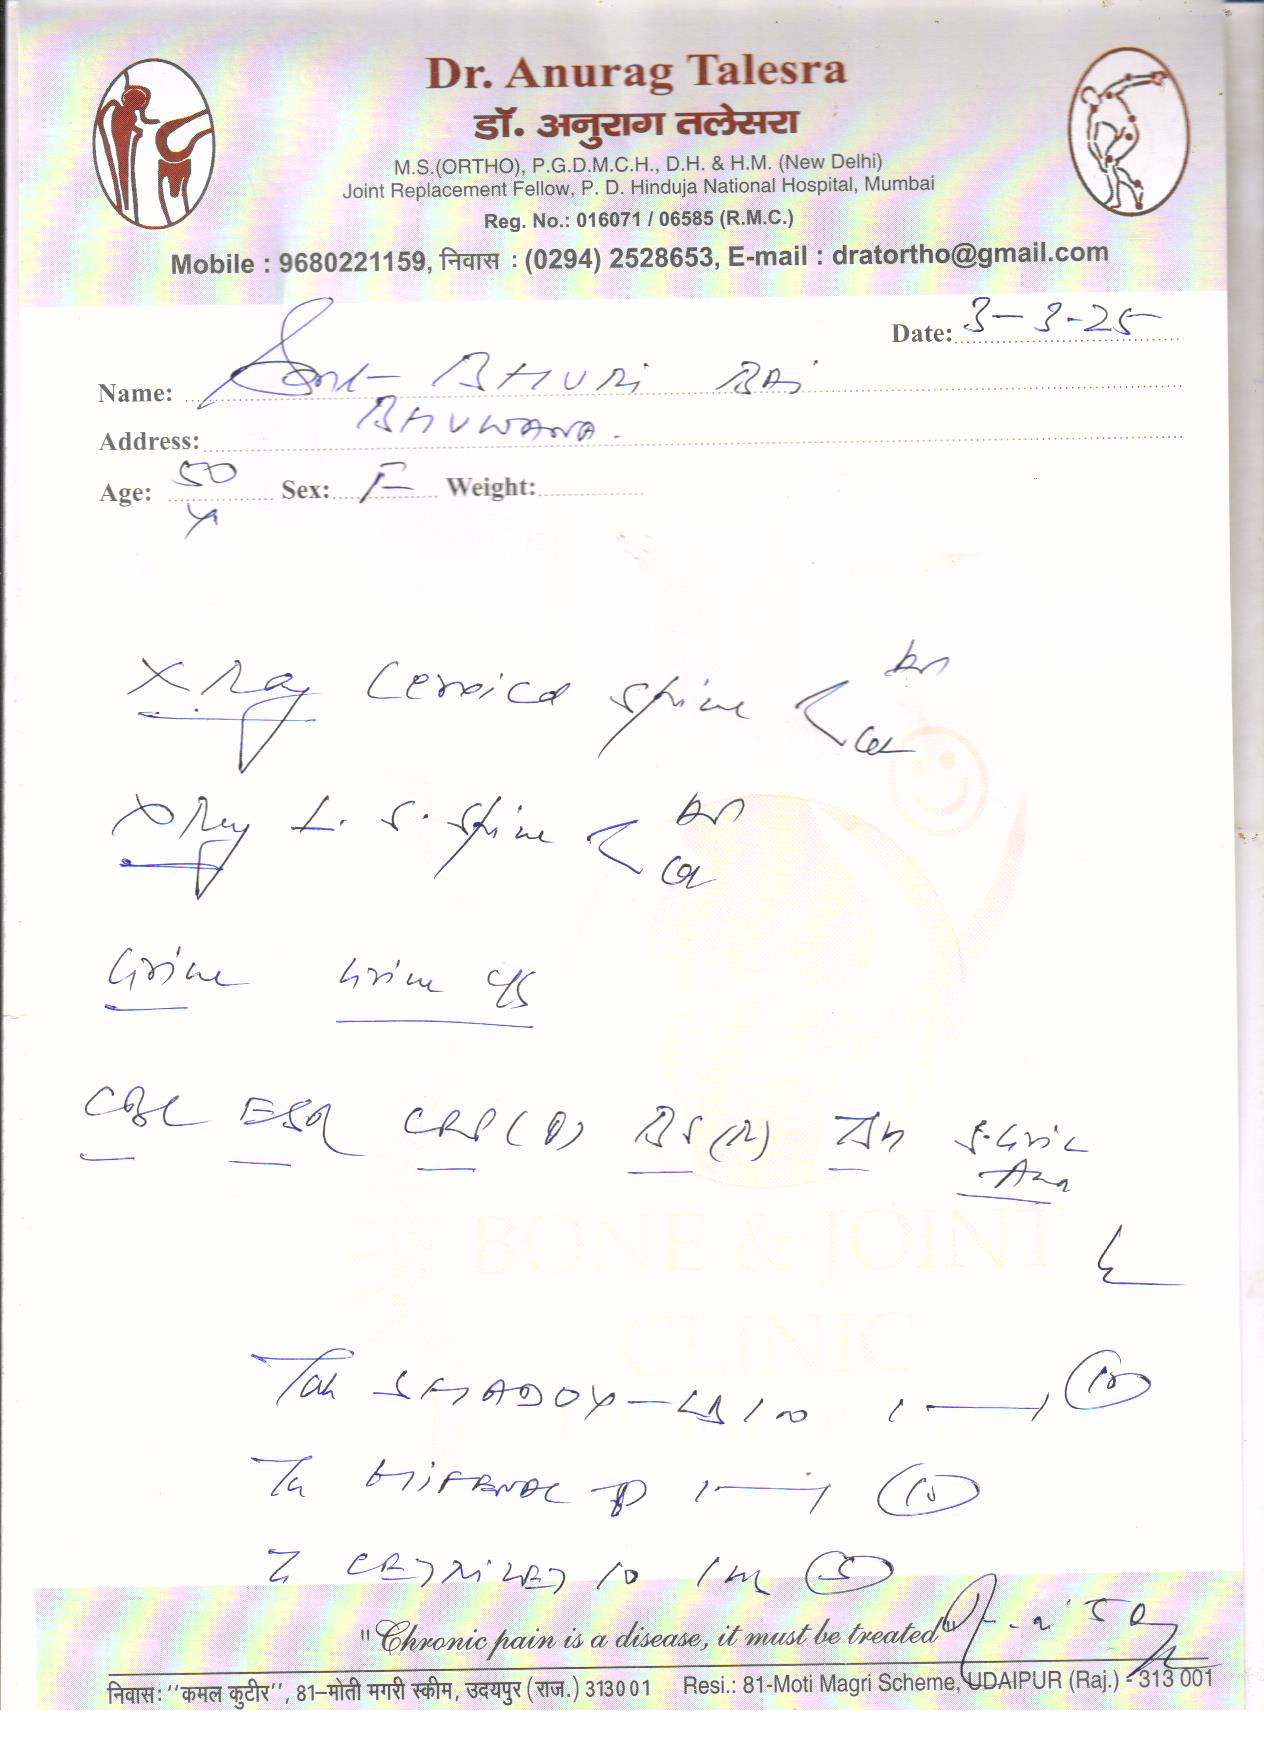 Dr. Anurag Talesra
डॉ. अनुराग तलेसरा
M.S.(ORTHO), P.G.D.M.C.H., D.H. & H.M. (New Delhi)
Joint Replacement Fellow, P. D. Hinduja National Hospital, Mumbai
Reg. No.: 016071 / 06585 (R.M.C.)
Mobile : 9680221159, निवास : (0294) 2528653, E-mail : dratortho@gmail.com
Date: 3-3-25
Name: Smt BHURI BAI
Address: BHUWANA.
Age: 50 Sex: F Weight:
X Ray Cervical Spine < AP
Lat
X Ray L. S. Spine < AP
Urine Urine C/S
CBC ESR CRP (Q) BS (R) S. Uric
BONE & JOINT
CLINIC
Tab 1 10
P 1 10
10 5
"Chronic pain is a disease, it must be treated"
निवास: ''कमल कुटीर'', 81–मोती मगरी स्कीम, उदयपुर (राज.) 313001 Resi.: 81-Moti Magri Scheme, UDAIPUR (Raj.) - 313 001